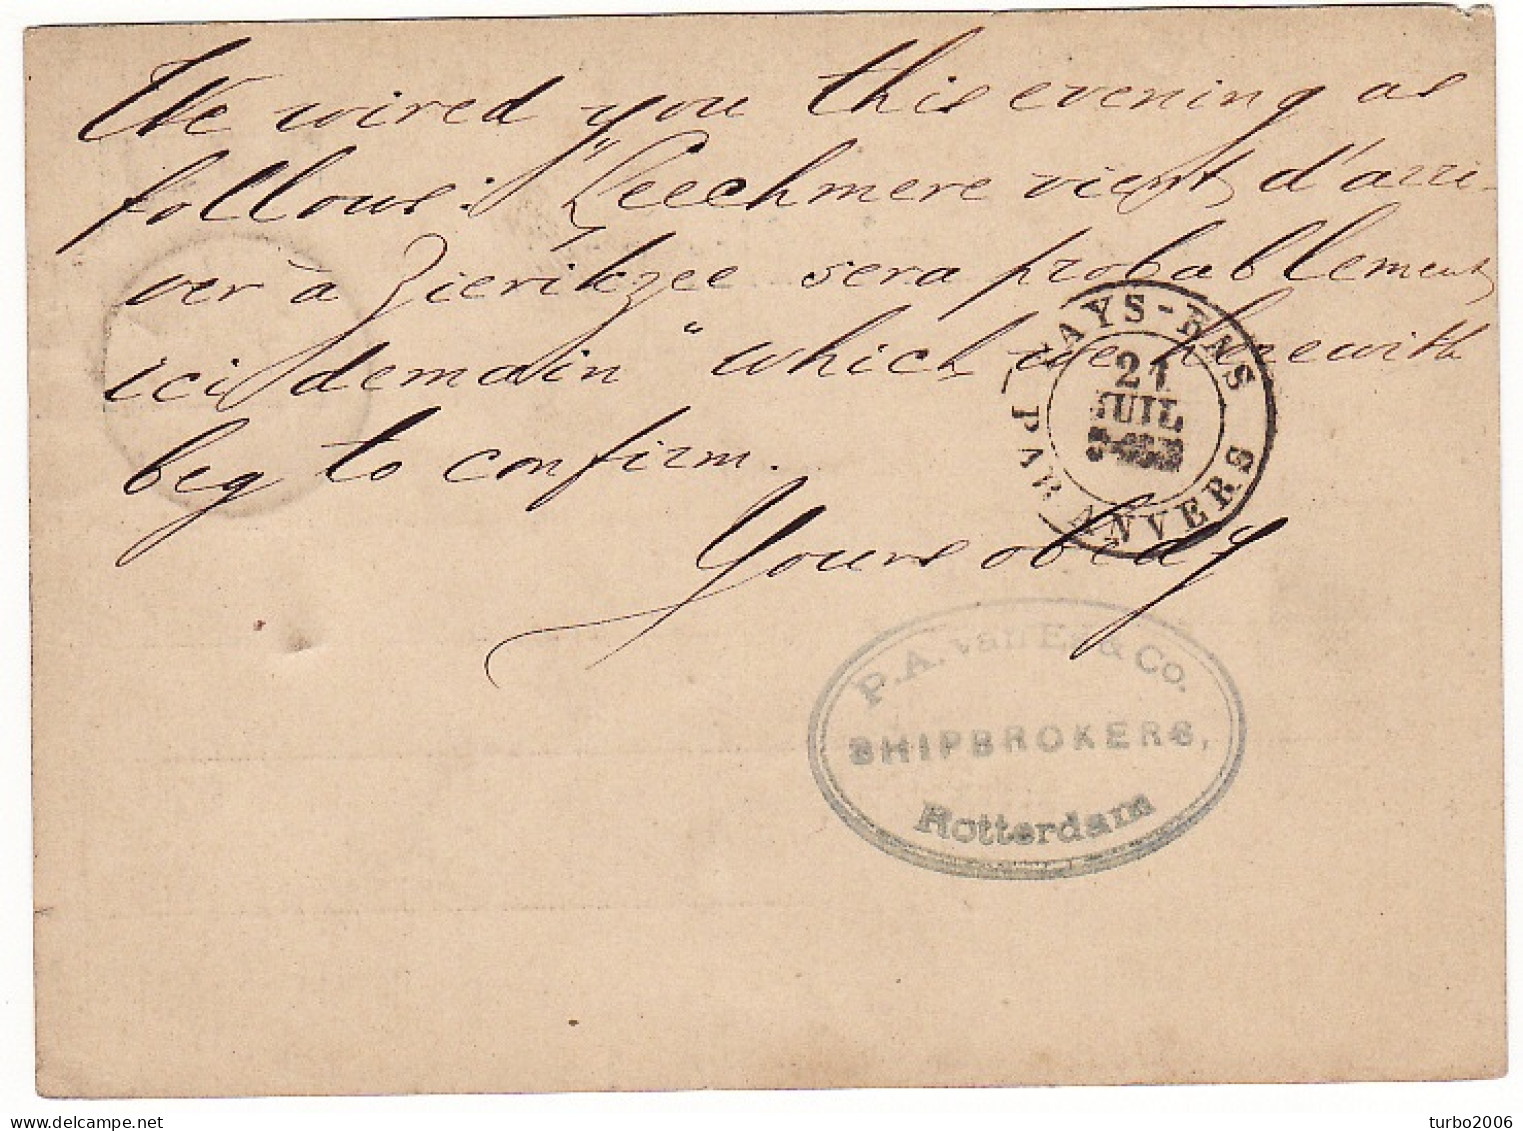 We wired you this evening as
follows: "Leechmere vient d'arri-
ver à Zierikzee sera probablement
ici demain" which we herewith
beg to confirm.
Yours obedy
PAYS-BAS
PAR ANVERS
21
JUIL
P.A. van Es & Co.
SHIPBROKERS,
Rotterdam
delcampe.net
turbo2006